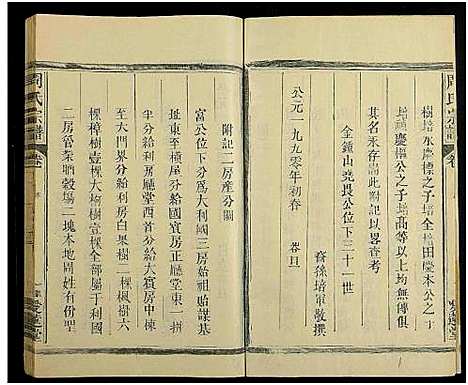 周氏宗譜
卷
樹培永慶櫑公之子培全培田慶本公之子
培慶櫑公之子培高等以上均無傳俱
其名永存誌此附記以畧查考
金鐘山堯畏公位下三十一世
裔孫培軍敬撰
公元一九九零年初春 春旦
附記二房產分關
富公位下分爲大利國三房始祖貽謀基
址東至橫屋分給國賓房正廳堂東一拼
半分給利房廳堂西首分給大賓房中棟
至大門界分給利房白果樹二棵楓樹六
棵樟樹壹棵大梅樹壹棵全部屬于利房
二房管業晒穀場一塊本地同姓有份聖
周氏宗譜
卷
愛蓮堂